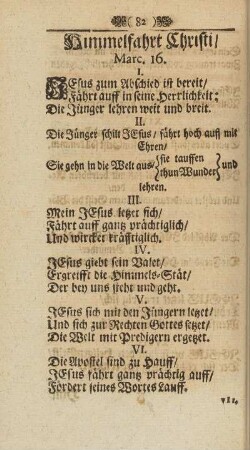 ( 82 )
Himmelfahrt Christi/
Marc. 16.
I.
JEsus zum Abschied ist bereit/
Fährt auff in seine Herrlichkeit:
Die Jünger lehren weit und breit.
II.
Die Jünger schilt JEsus/ fährt hoch auff mit
Ehren/
Sie gehn in die Welt aus/ {sie tauffen
thun Wunder} und
lehren.
III.
Mein JEsus letzet sich/
Fährt auff gantz prächtiglich/
Und wircket kräfftiglich.
IV.
JEsus giebt sein Valet/
Ergreifft die Himmels-Stät/
Der bey uns steht und geht.
V.
JEsus sich mit den Jüngern letzet/
Und sich zur Rechten Gottes setzet/
Die Welt mit Predigern ergetzet.
VI.
Die Apostel sind zu Hauff/
JEsus fährt gantz prächtig auff/
Fördert seines Wortes Lauff.